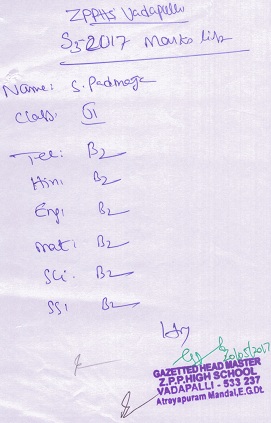 ZPPHS Vadapalli
S3-2017 Marks list
Name: S. Padmaja
Class: VI
Tel: B2
Hin: B2
Eng: B2
mat: B2
Sci: B2
SS: B2
20/05/2017
GAZETTED HEAD MASTER
Z.P.P.HIGH SCHOOL
VADAPALLI - 533 237
Atreyapuram Mandal,E.G.Dt.